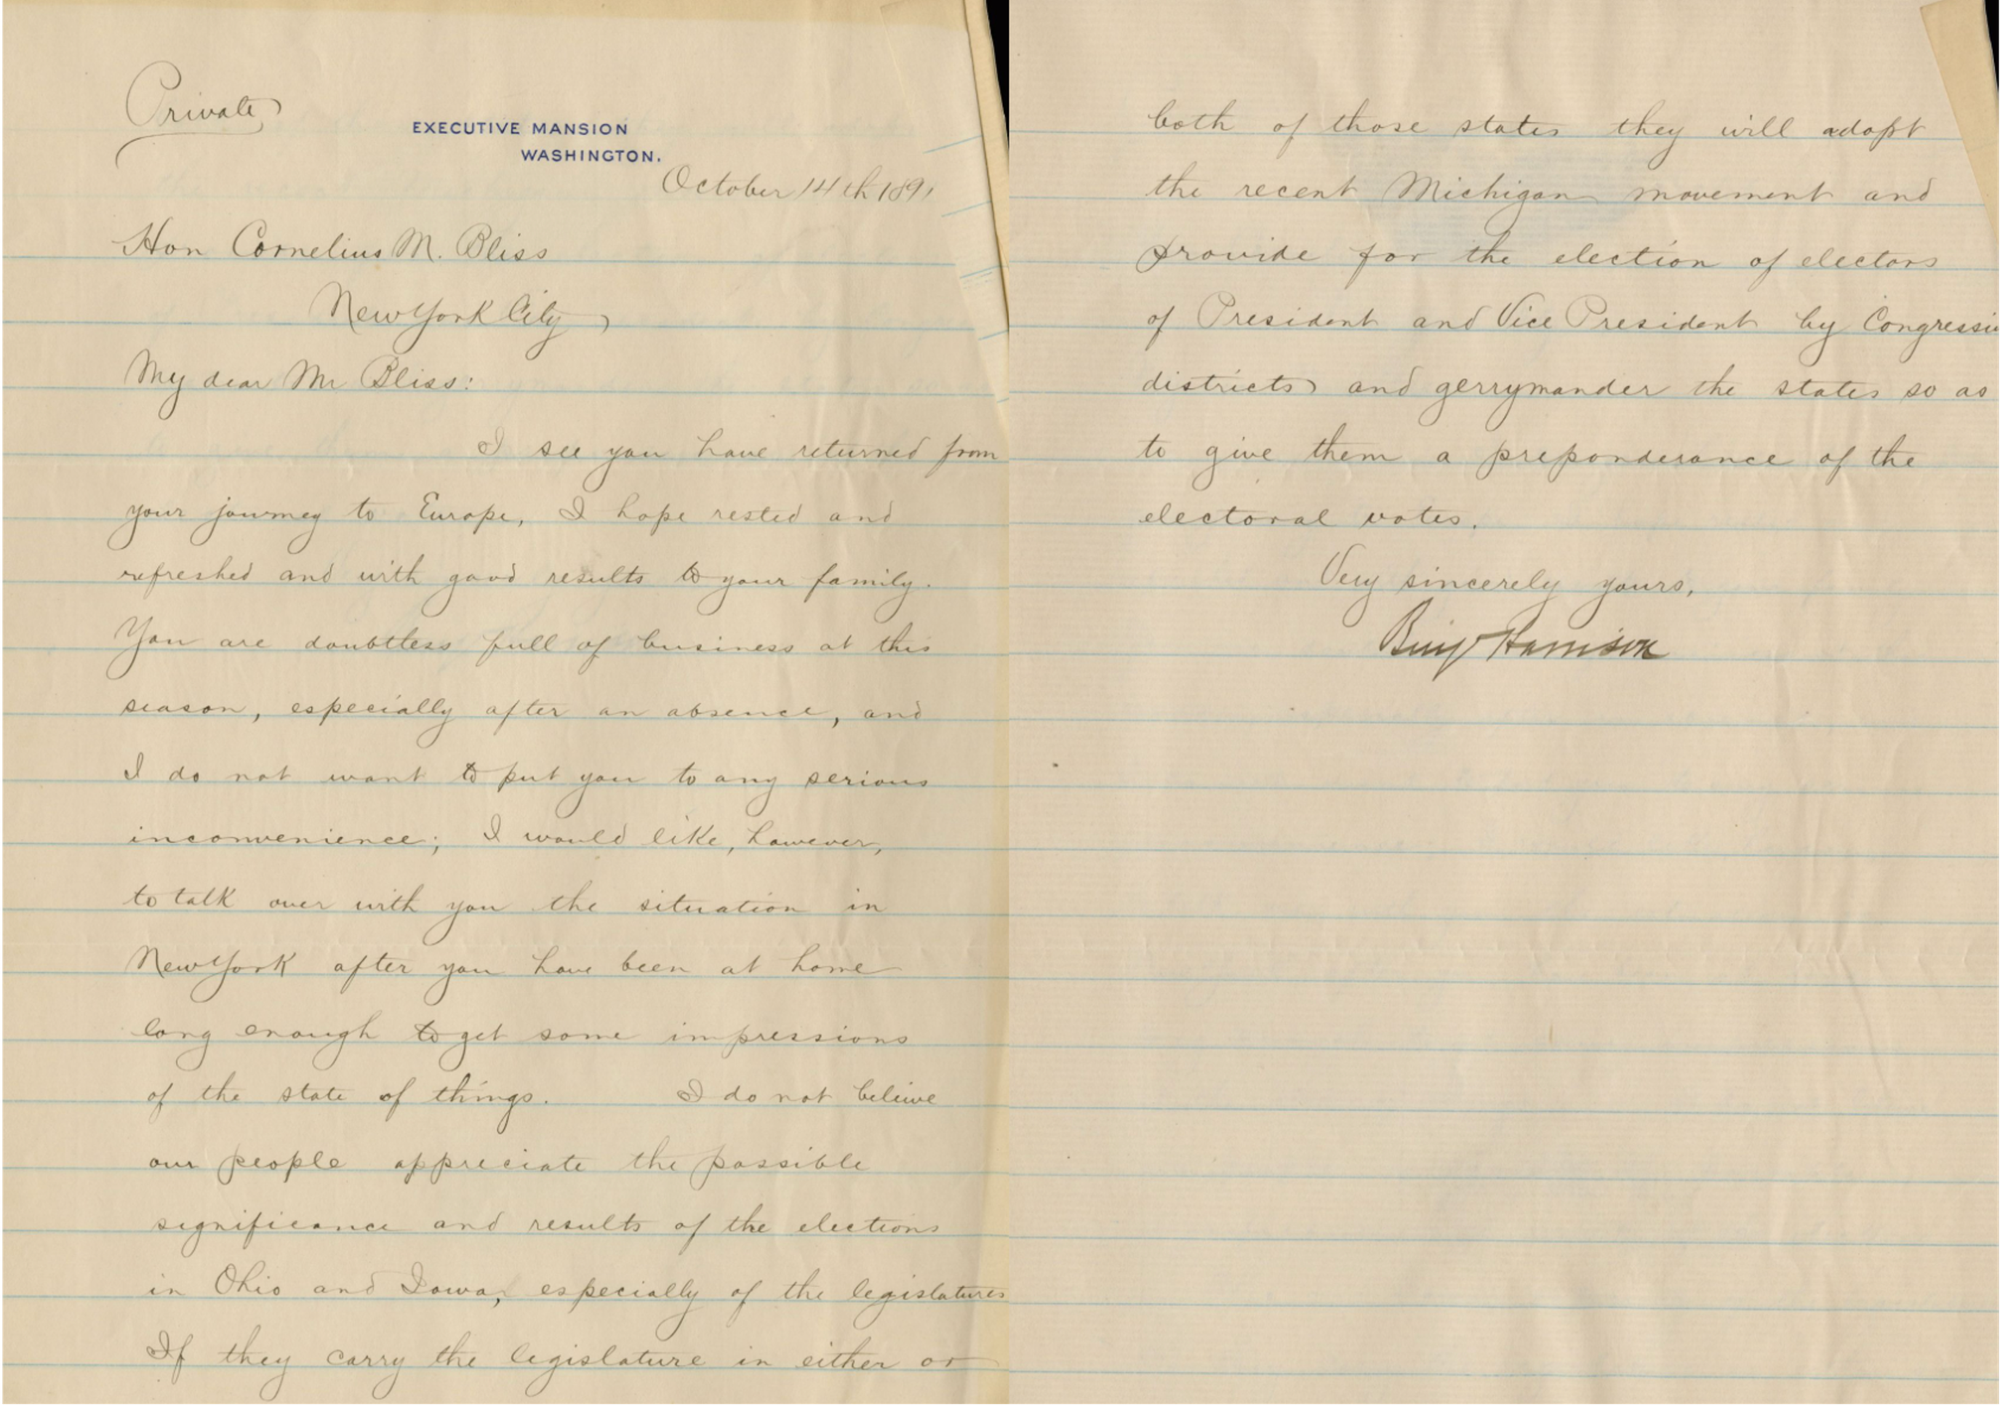 Private
EXECUTIVE MANSION
WASHINGTON.
October 14th 1891
Hon Cornelius M. Bliss
New York City
My dear Mr Bliss:
I see you have returned from
your journey to Europe, I hope rested and
refreshed and with good results to your family.
You are doubtless full of business at this
season, especially after an absence, and
I do not want to put you to any serious
inconvenience; I would like, however,
to talk over with you the situation in
New York after you have been at home
long enough to get some impressions
of the state of things. I do not believe
our people appreciate the possible
significance and results of the elections
in Ohio and Iowa, especially of the legislatures
If they carry the legislature in either or
both of those states they will adopt
the recent Michigan movement and
provide for the election of electors
of President and Vice President by Congressio
districts and gerrymander the states so as
to give them a preponderance of the
electoral votes.
Very sincerely yours,
Benj Harrison